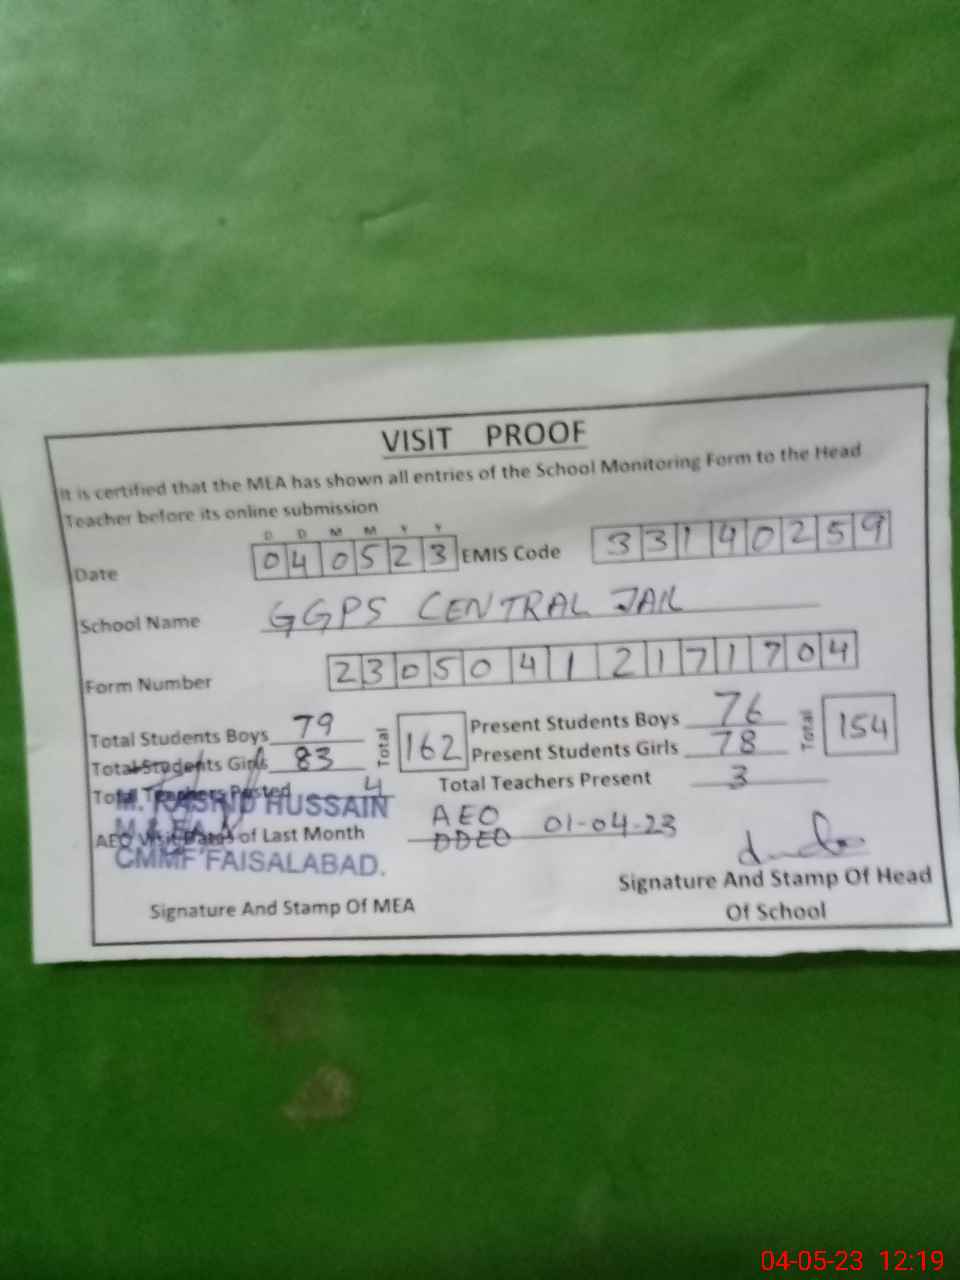 VISIT PROOF
It is certified that the MEA has shown all entries of the School Monitoring Form to the Head
Teacher before its online submission
D D M M Y Y
Date 040523 EMIS Code 33140259
School Name GGPS CENTRAL JAIL
Form Number 23050412171704
Total Students Boys 79 Total 162 Present Students Boys 76 Total 154
Total Students Girls 83 Present Students Girls 78
Total Teachers Posted 4 Total Teachers Present 3
M. RASHID HUSSAIN
AEO Visit Dates of Last Month AEO DDEO 01-04-23
CMMF FAISALABAD.
Signature And Stamp Of MEA
Signature And Stamp Of Head
Of School
04-05-23 12:19